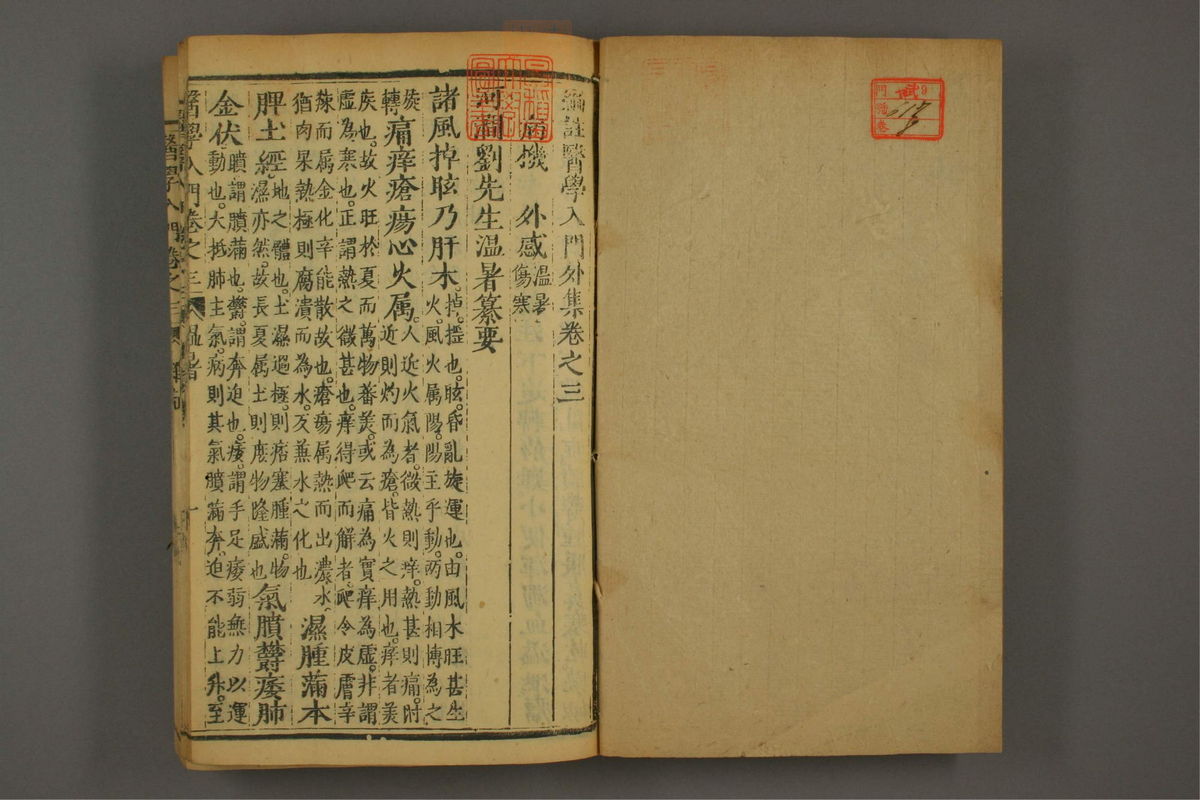 編註醫學入門外集卷之三
病機 外感 溫暑 傷寒
河間劉先生溫暑纂要
諸風掉眩乃肝木
掉。搖也。眩。昏亂旋運也。由風木旺甚生
火。風火属陽。陽主乎動。兩動相搏為之
旋
轉
痛痒瘡瘍心火属
人近火氣者。微熱則痒。熱甚則痛。附
近則灼而為瘡。皆火之用也。痒者美
疾也。故火旺於夏而萬物蕃美。或云痛為實痒為虛。非謂
虛為寒也。正謂熱之微甚也。痒得爬而解者。爬令皮膚辛
辣而属金化辛能散故也。瘡瘍属熱而出濃水。
猶肉果熱極則腐潰而為水。反兼水之化也
濕腫滿本
脾土經
地之體也。土濕過極。則痞塞腫滿。物
濕亦然。故長夏属土則庶物隆盛也
氣膹鬱痿肺
金伏
膹謂膹滿也。鬱。謂奔迫也。痿。謂手足痿弱無力以運
動也。大抵肺主氣。病則其氣膹滿奔迫不能上升。至
醫學入門卷之三 溫暑 一